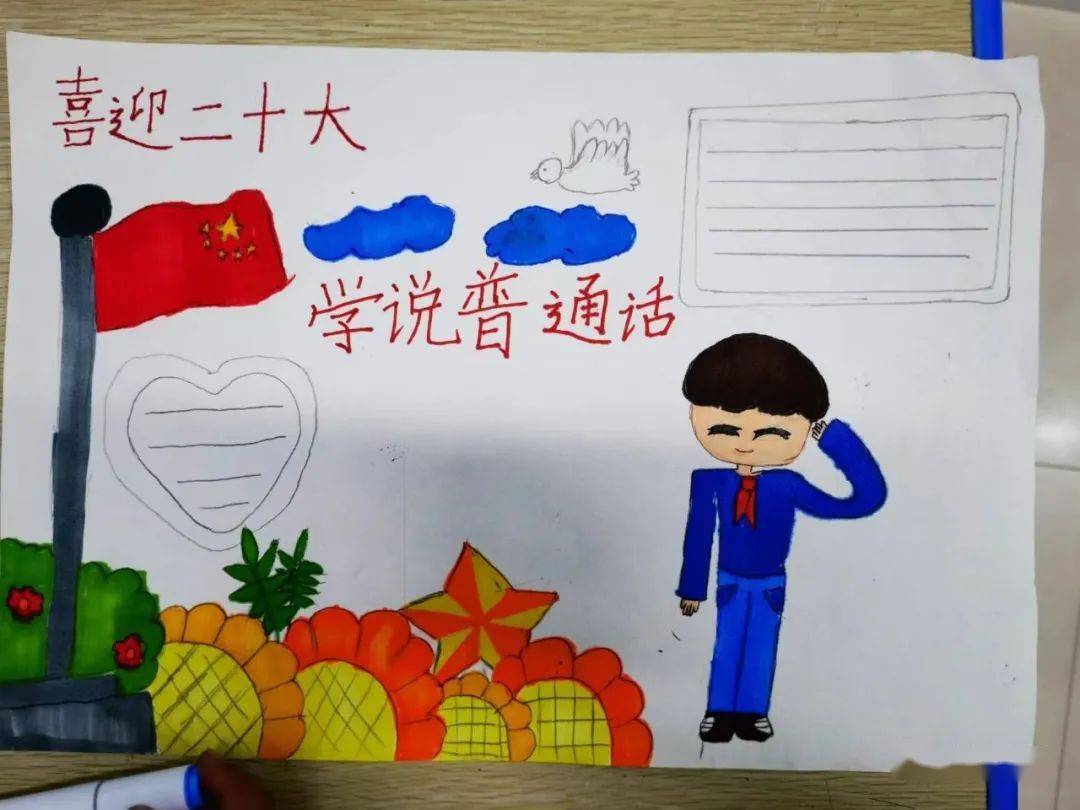 喜迎二十大
学说普通话